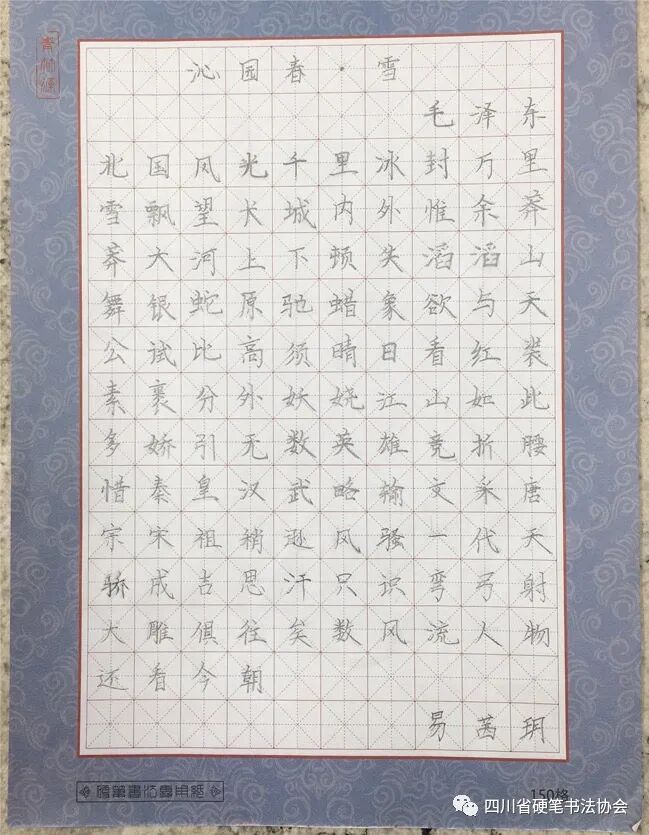 沁园春·雪
毛泽东
北国风光千里冰封万里
雪飘望长城内外惟余莽
莽大河上下顿失滔滔山
舞银蛇原驰蜡象欲与天
公试比高须晴日看红装
素裹分外妖娆江山如此
多娇引无数英雄竞折腰
惜秦皇汉武略输文采唐
宗宋祖稍逊风骚一代天
骄成吉思汗只识弯弓射
大雕俱往矣数风流人物
还看今朝
易茜玥
硬筆書法專用紙
150格
四川省硬笔书法协会